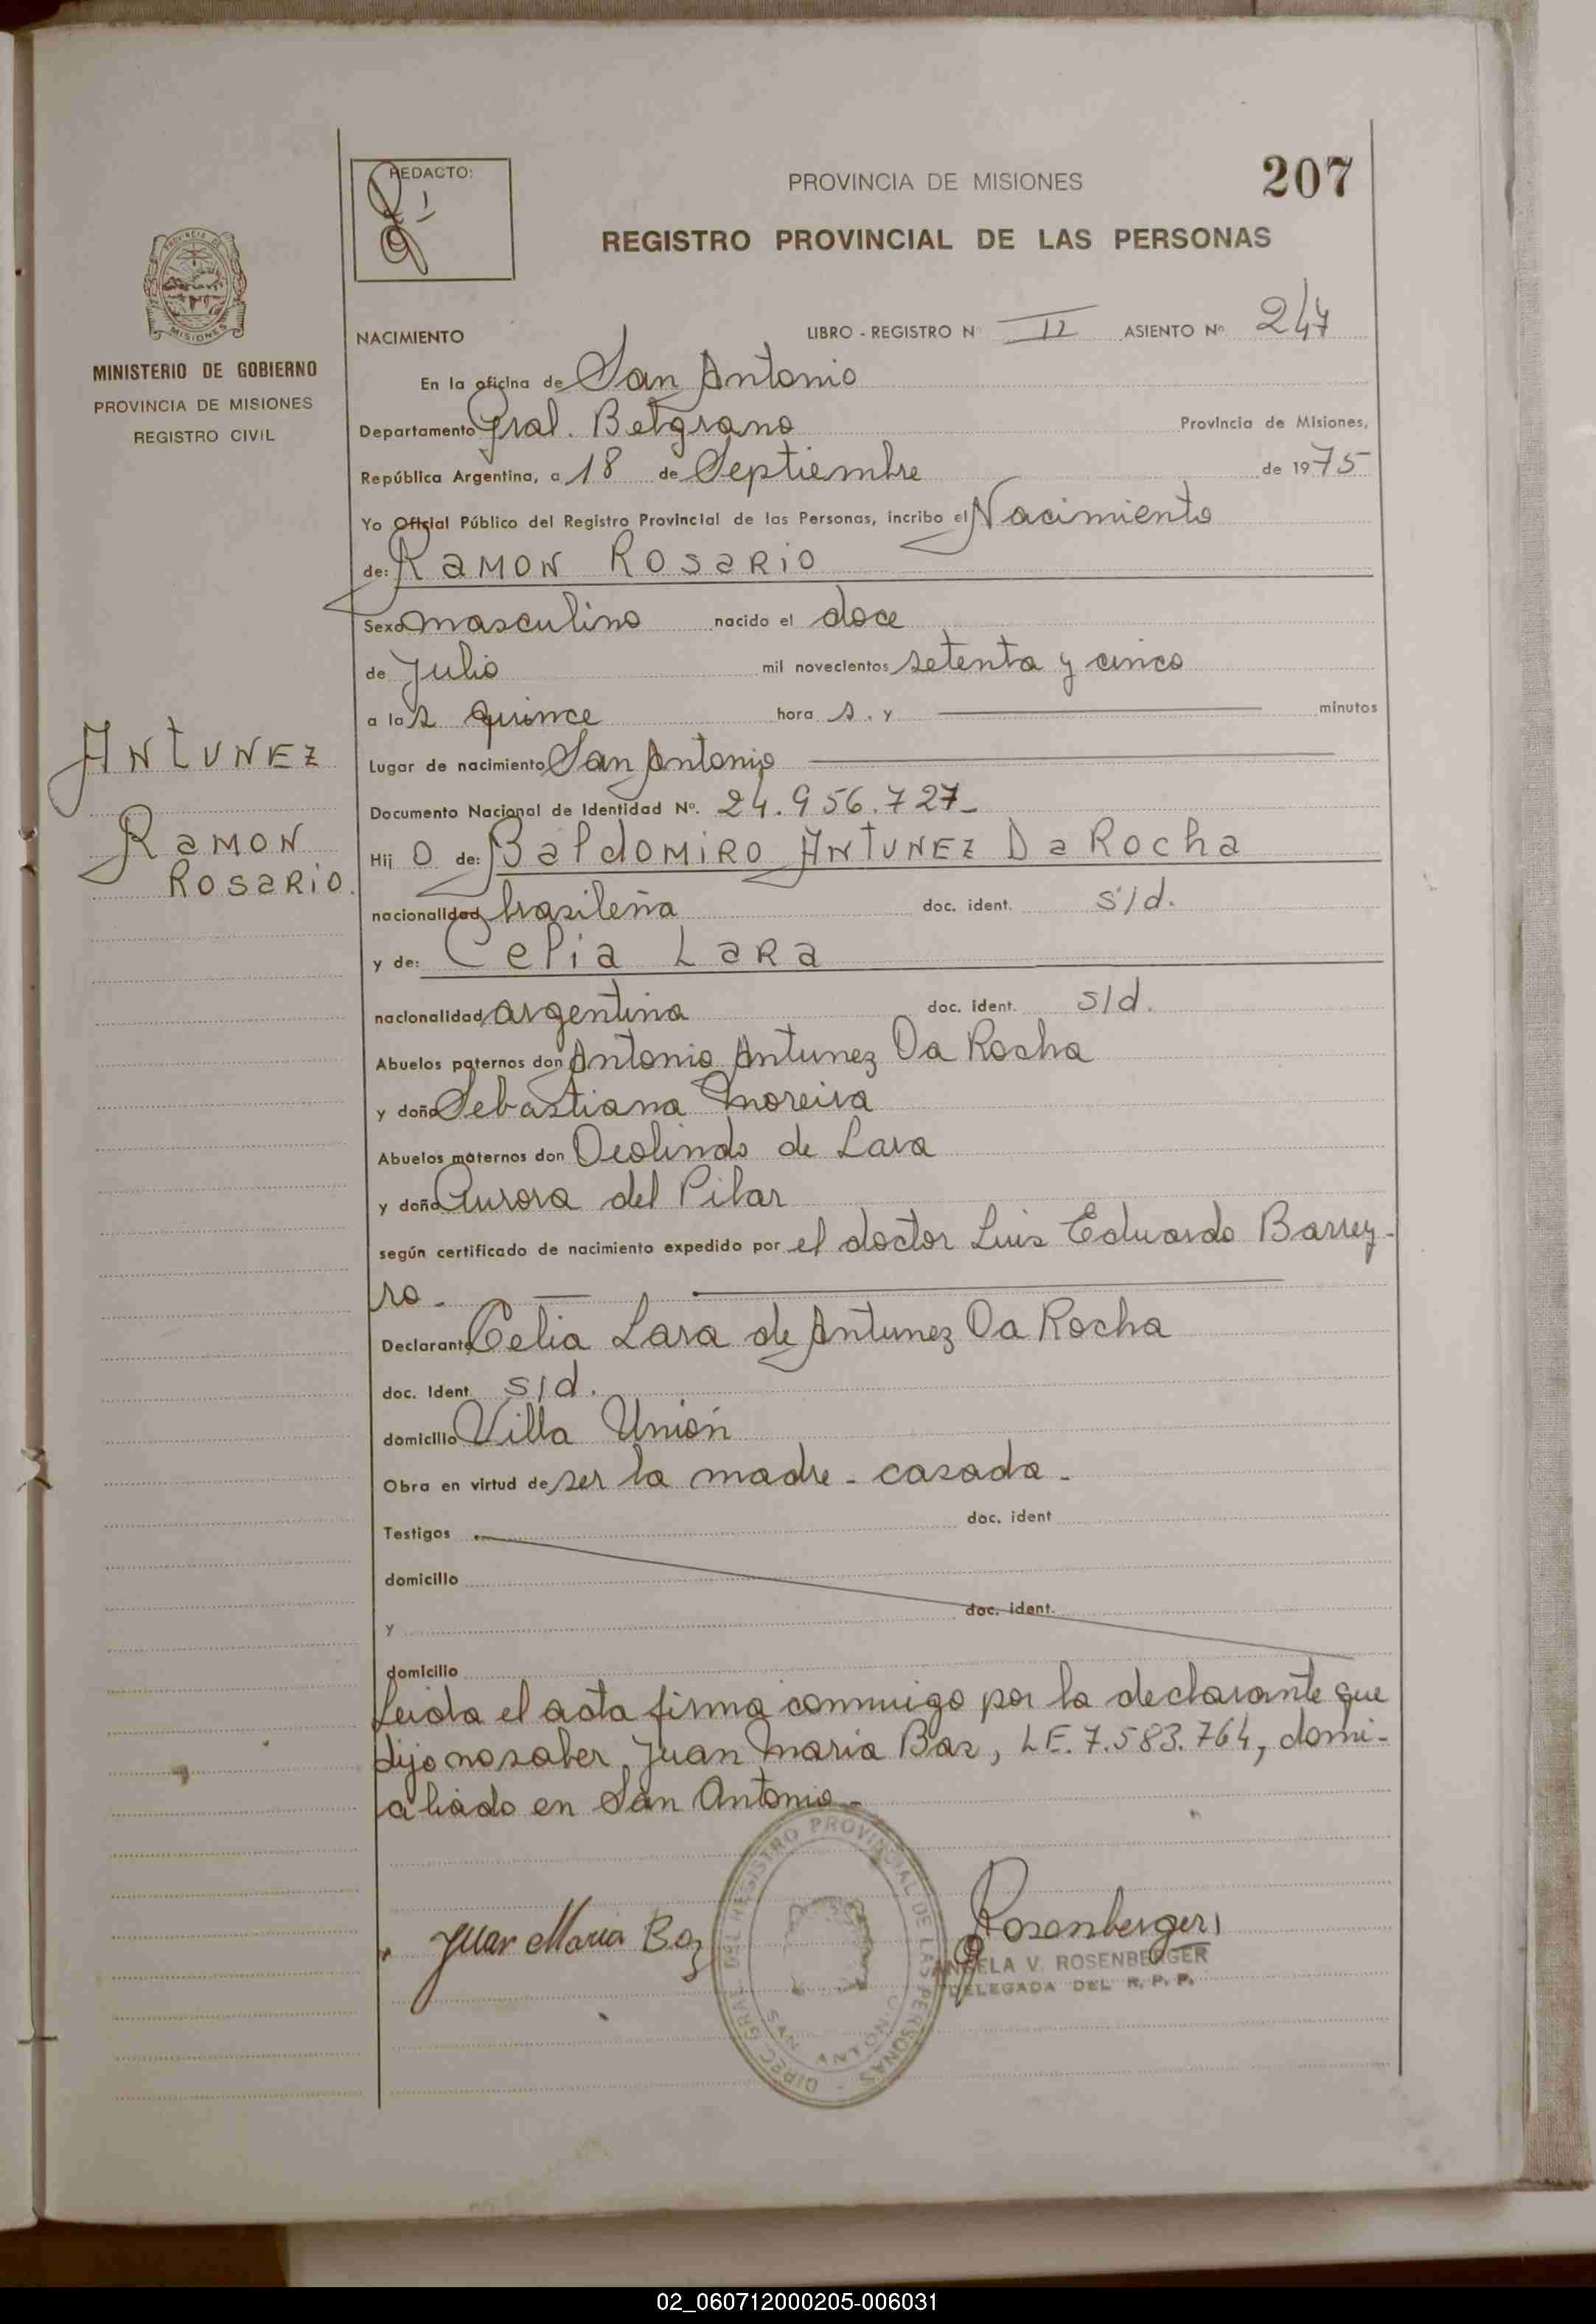 207
REDACTO:
PROVINCIA DE MISIONES
REGISTRO PROVINCIAL DE LAS PERSONAS
PROVINCIA DE MISIONES
MINISTERIO DE GOBIERNO
PROVINCIA DE MISIONES
REGISTRO CIVIL
NACIMIENTO LIBRO - REGISTRO Nº II ASIENTO Nº 247
En la oficina de San Antonio
Departamento Gral. Belgrano Provincia de Misiones,
República Argentina, a 18 de Septiembre de 1975
Yo Oficial Público del Registro Provincial de las Personas, incribo el Nacimiento
de: RAMON ROSARIO
Sexo masculino nacido el doce
de Julio mil novecientos setenta y cinco
a las quince hora s. y minutos
Lugar de nacimiento San Antonio
Documento Nacional de Identidad Nº. 24.956.727_
ANTUNEZ
RAMON
ROSARIO.
Hij O de: BALDOMIRO ANTUNEZ Da Rocha
nacionalidad brasileña doc. ident. s/d.
y de: Celia LARA
nacionalidad argentina doc. ident. s/d.
Abuelos paternos don Antonio Antunez Da Rocha
y doña Sebastiana Moreira
Abuelos maternos don Deolindo de Lara
y doña Aurora del Pilar
según certificado de nacimiento expedido por el doctor Luis Eduardo Barrey-
ro-
Declarante Celia Lara de Antunez Da Rocha
doc. Ident. s/d.
domicilio Villa Unión
Obra en virtud de ser la madre - casada -
Testigos doc. ident
domicilio
y doc. ident.
domicilio
Leida el acta firma conmigo por la declarante que
dijo no saber Juan Maria Baz, L.E. 7.583.764, domi-
ciliado en San Antonio -
Juan Maria Baz
Rosenberger
ANGELA V. ROSENBERGER
DELEGADA DEL R. P. P.
DIREC. GRAL. DEL REGISTRO PROVINCIAL DE LAS PERSONAS -
SAN ANTONIO
02_060712000205-006031